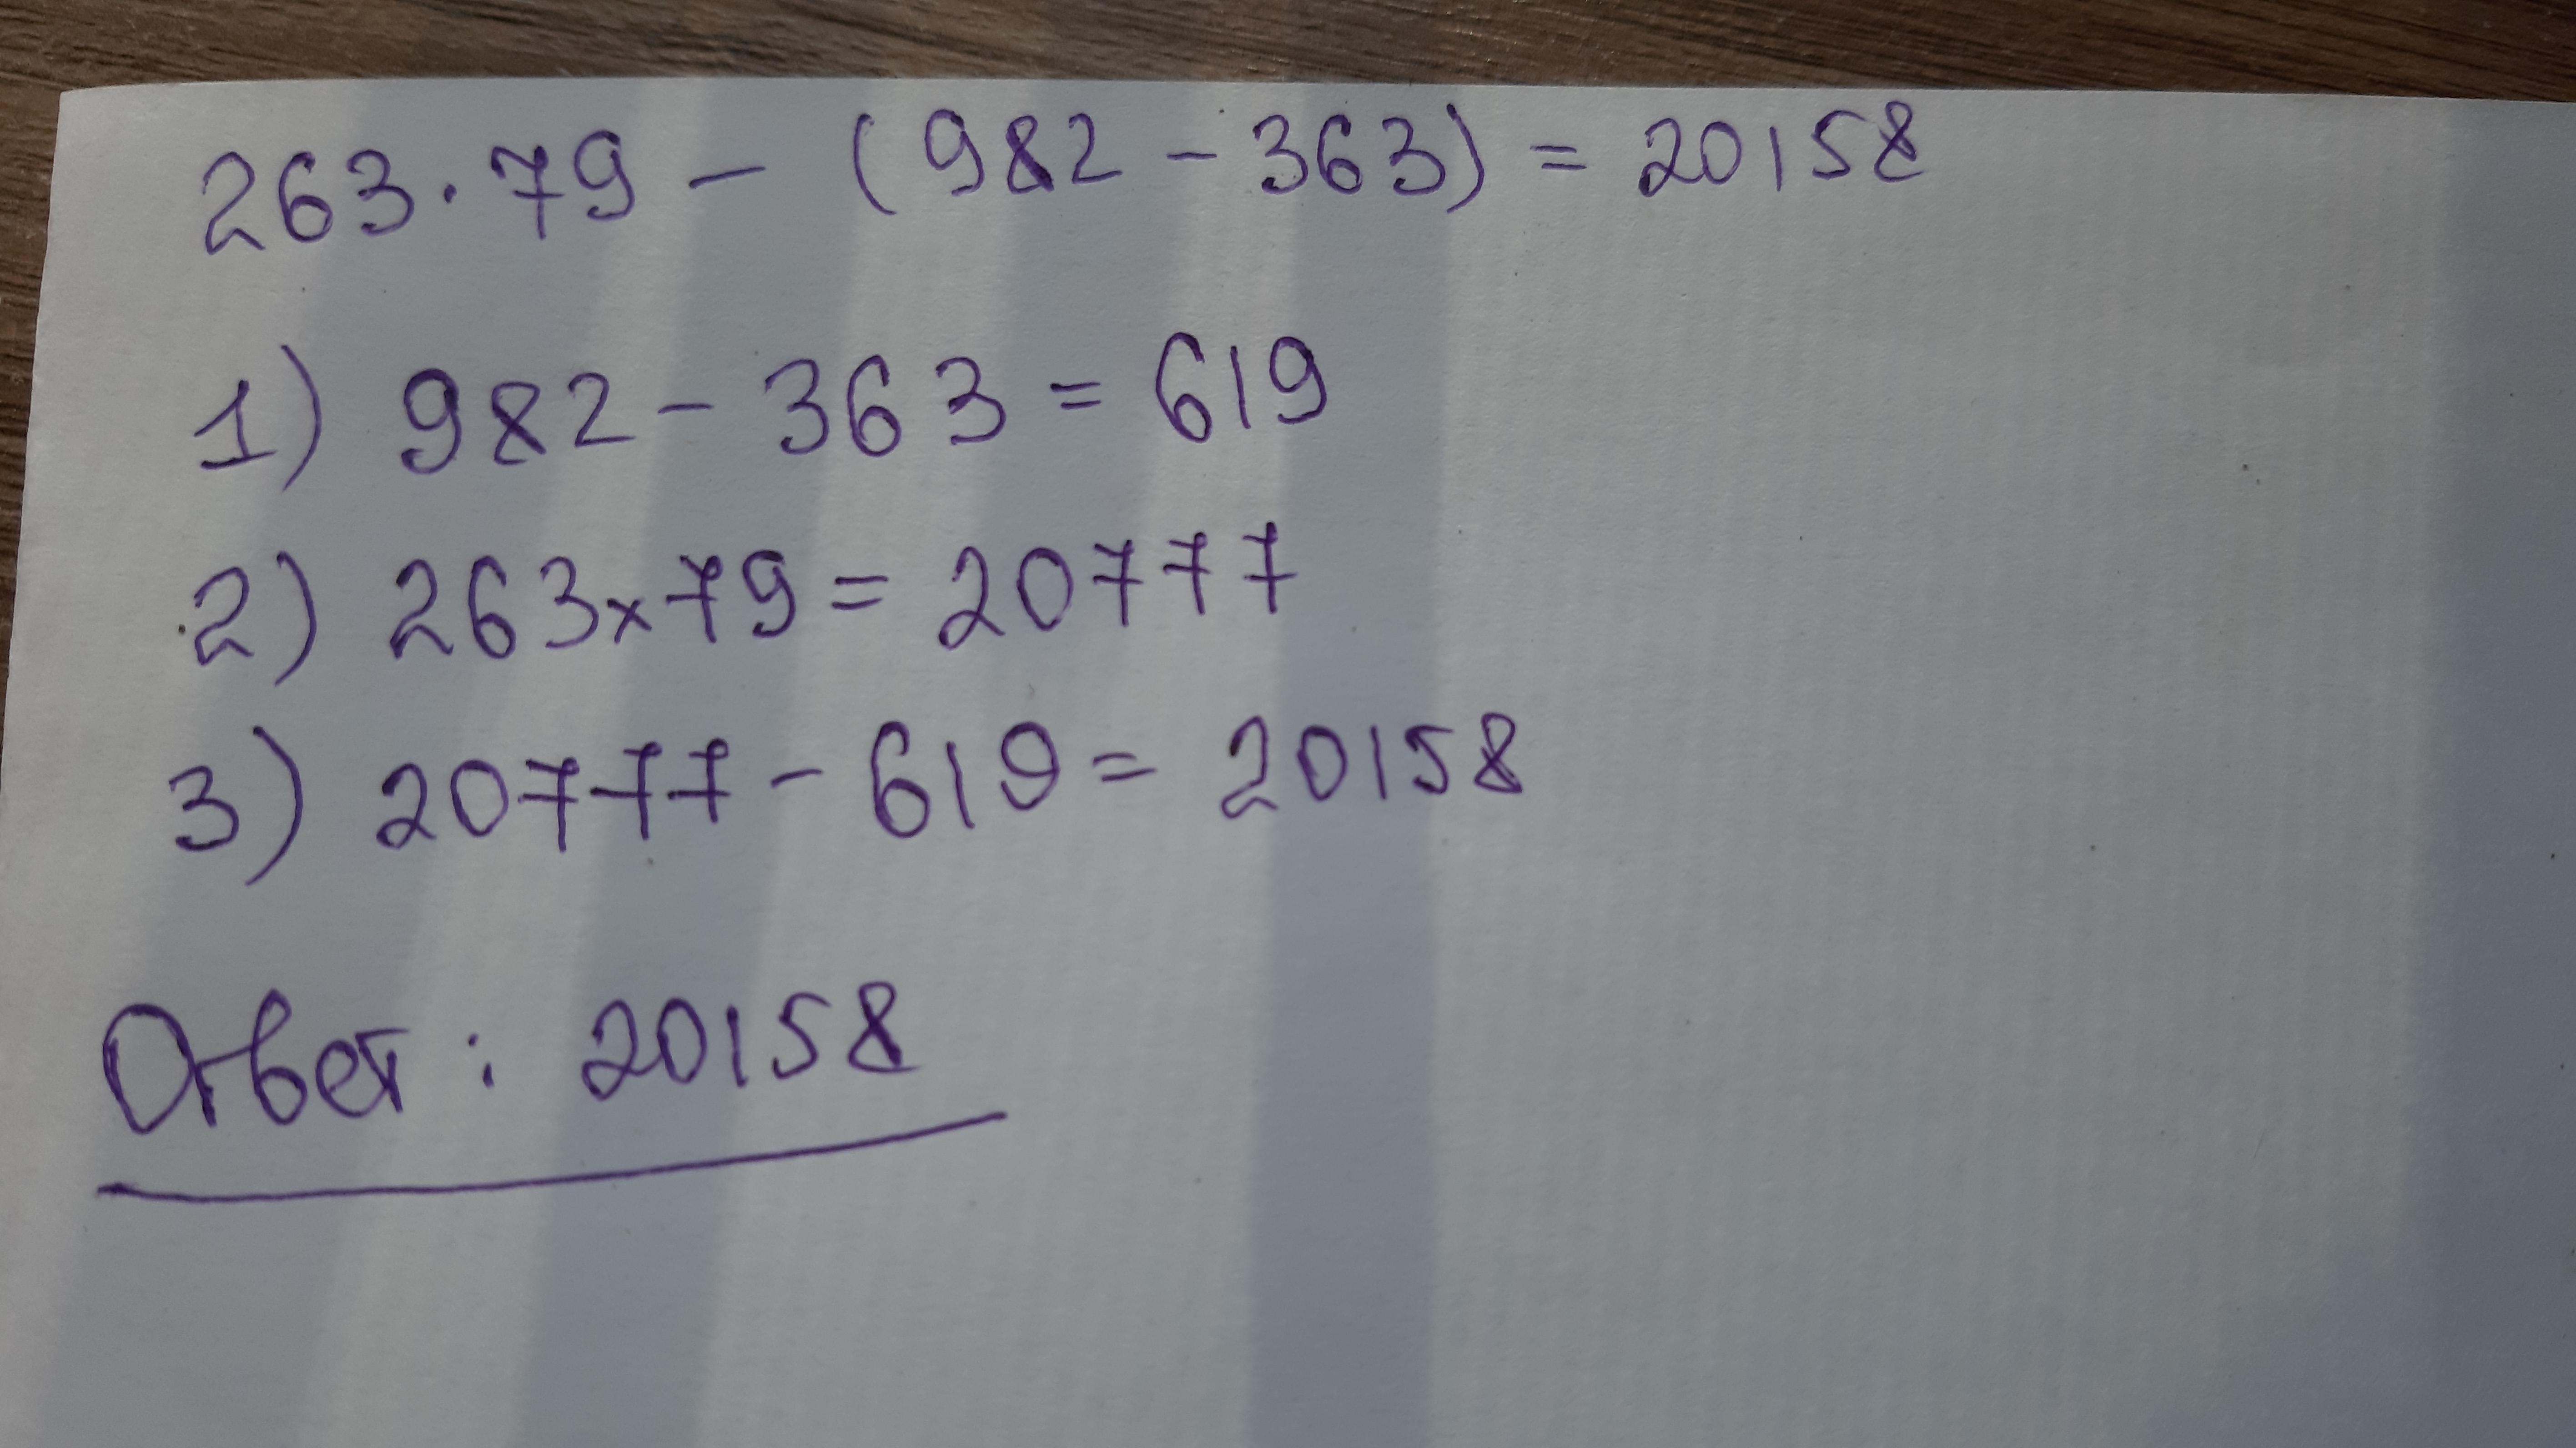 263·79 - (982 - 363) = 20158
1) 982 - 363 = 619
2) 263×79 = 20777
3) 20777 - 619 = 20158
Ответ: 20158